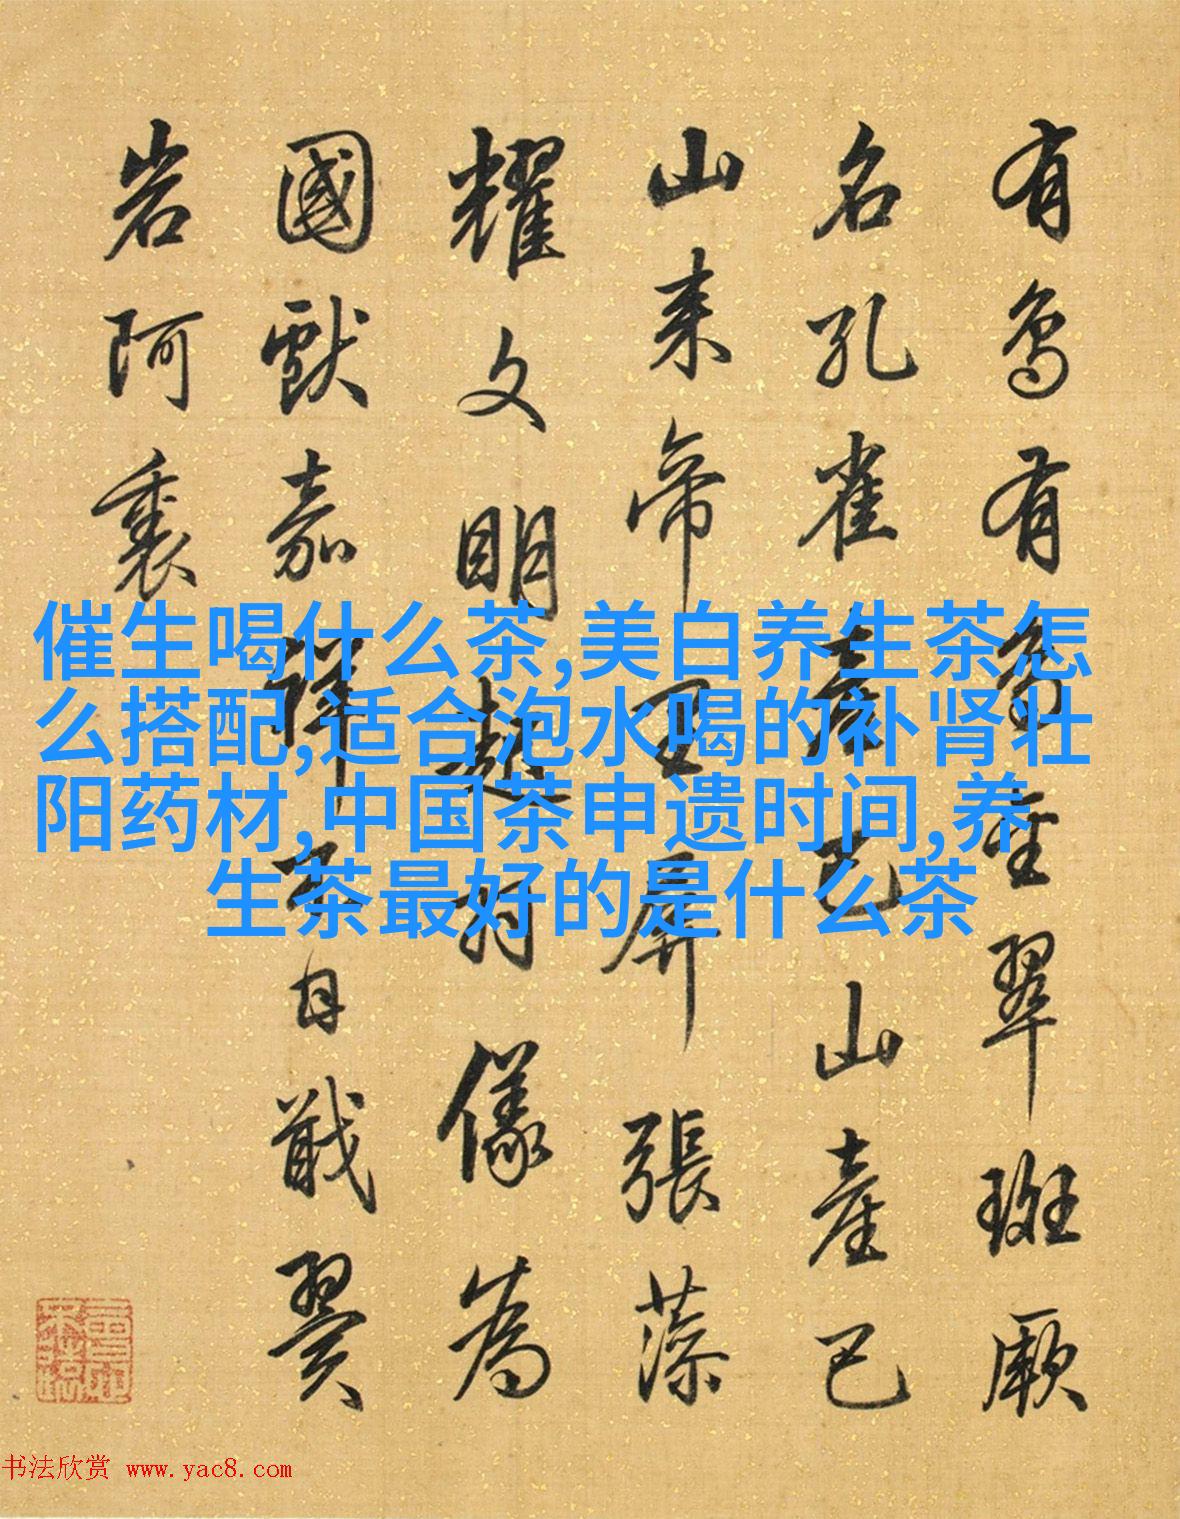 有鳥有鳥金翠斑厥
名孔雀產巴山產巴
山来帝王屏張藻
耀文明起對儀為
國獻嘉祥予日戢翼
岩阿裏
催生喝什么茶,美白养生茶怎
么搭配,适合泡水喝的补肾壮
阳药材,中国茶申遗时间,养
生茶最好的是什么茶
书法欣赏 www.yac8.com